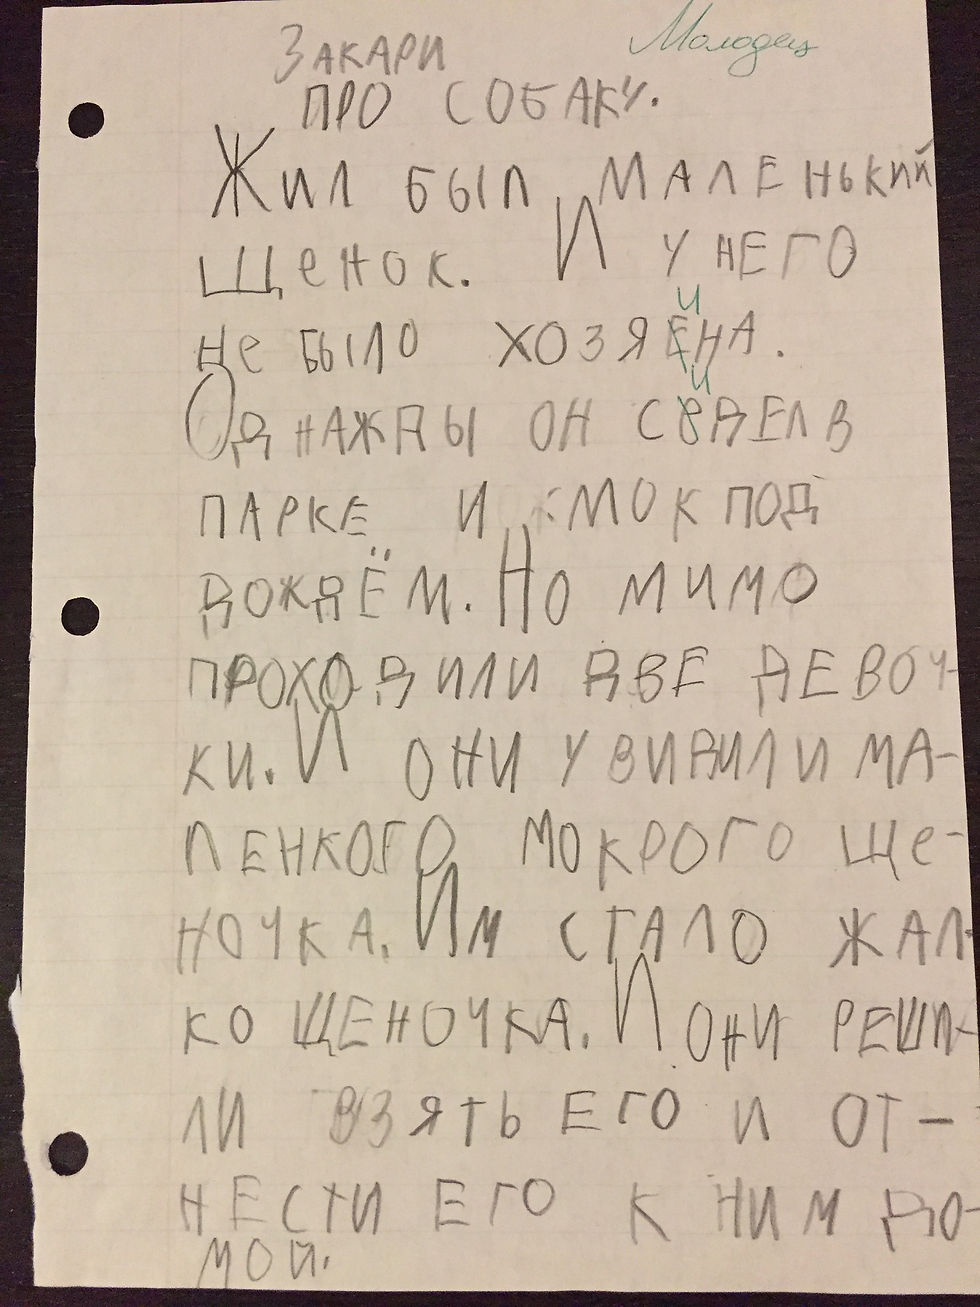 Закари
Молодец
ПРО СОБАКУ.
Жил БЫЛ МАЛЕНЬКИЙ
щенок. И У НЕГО
не было ХОЗЯЕНА.
и
и
ОДНАЖДЫ ОН СеДЕЛ В
ПАРКЕ И МОК ПОД
ДОЖДЁМ. НО МИМО
ПРОХОДИЛИ ДВЕ ДЕВОЧ-
КИ. И ОНИ УВИДИЛИ МА-
ЛЕНКОГО МОКРОГО Ще-
НОЧКА. ИМ СТАЛО ЖАЛ-
КО ЩЕНОЧКА. И ОНИ РЕШИ-
ЛИ ВЗЯТЬ ЕГО И ОТ-
НЕСТИ ЕГО К НИМ ДО-
МОЙ.